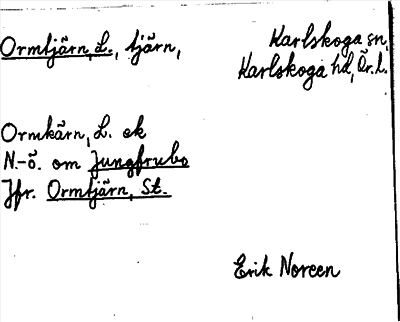 Ormtjärn, L., tjärn, Karlskoga sn,
Karlskoga hd, Ör. l.
Ormkärn, L. ek
N.-ö. om Jungfrubo
Jfr. Ormtjärn, St.
Erik Noreen